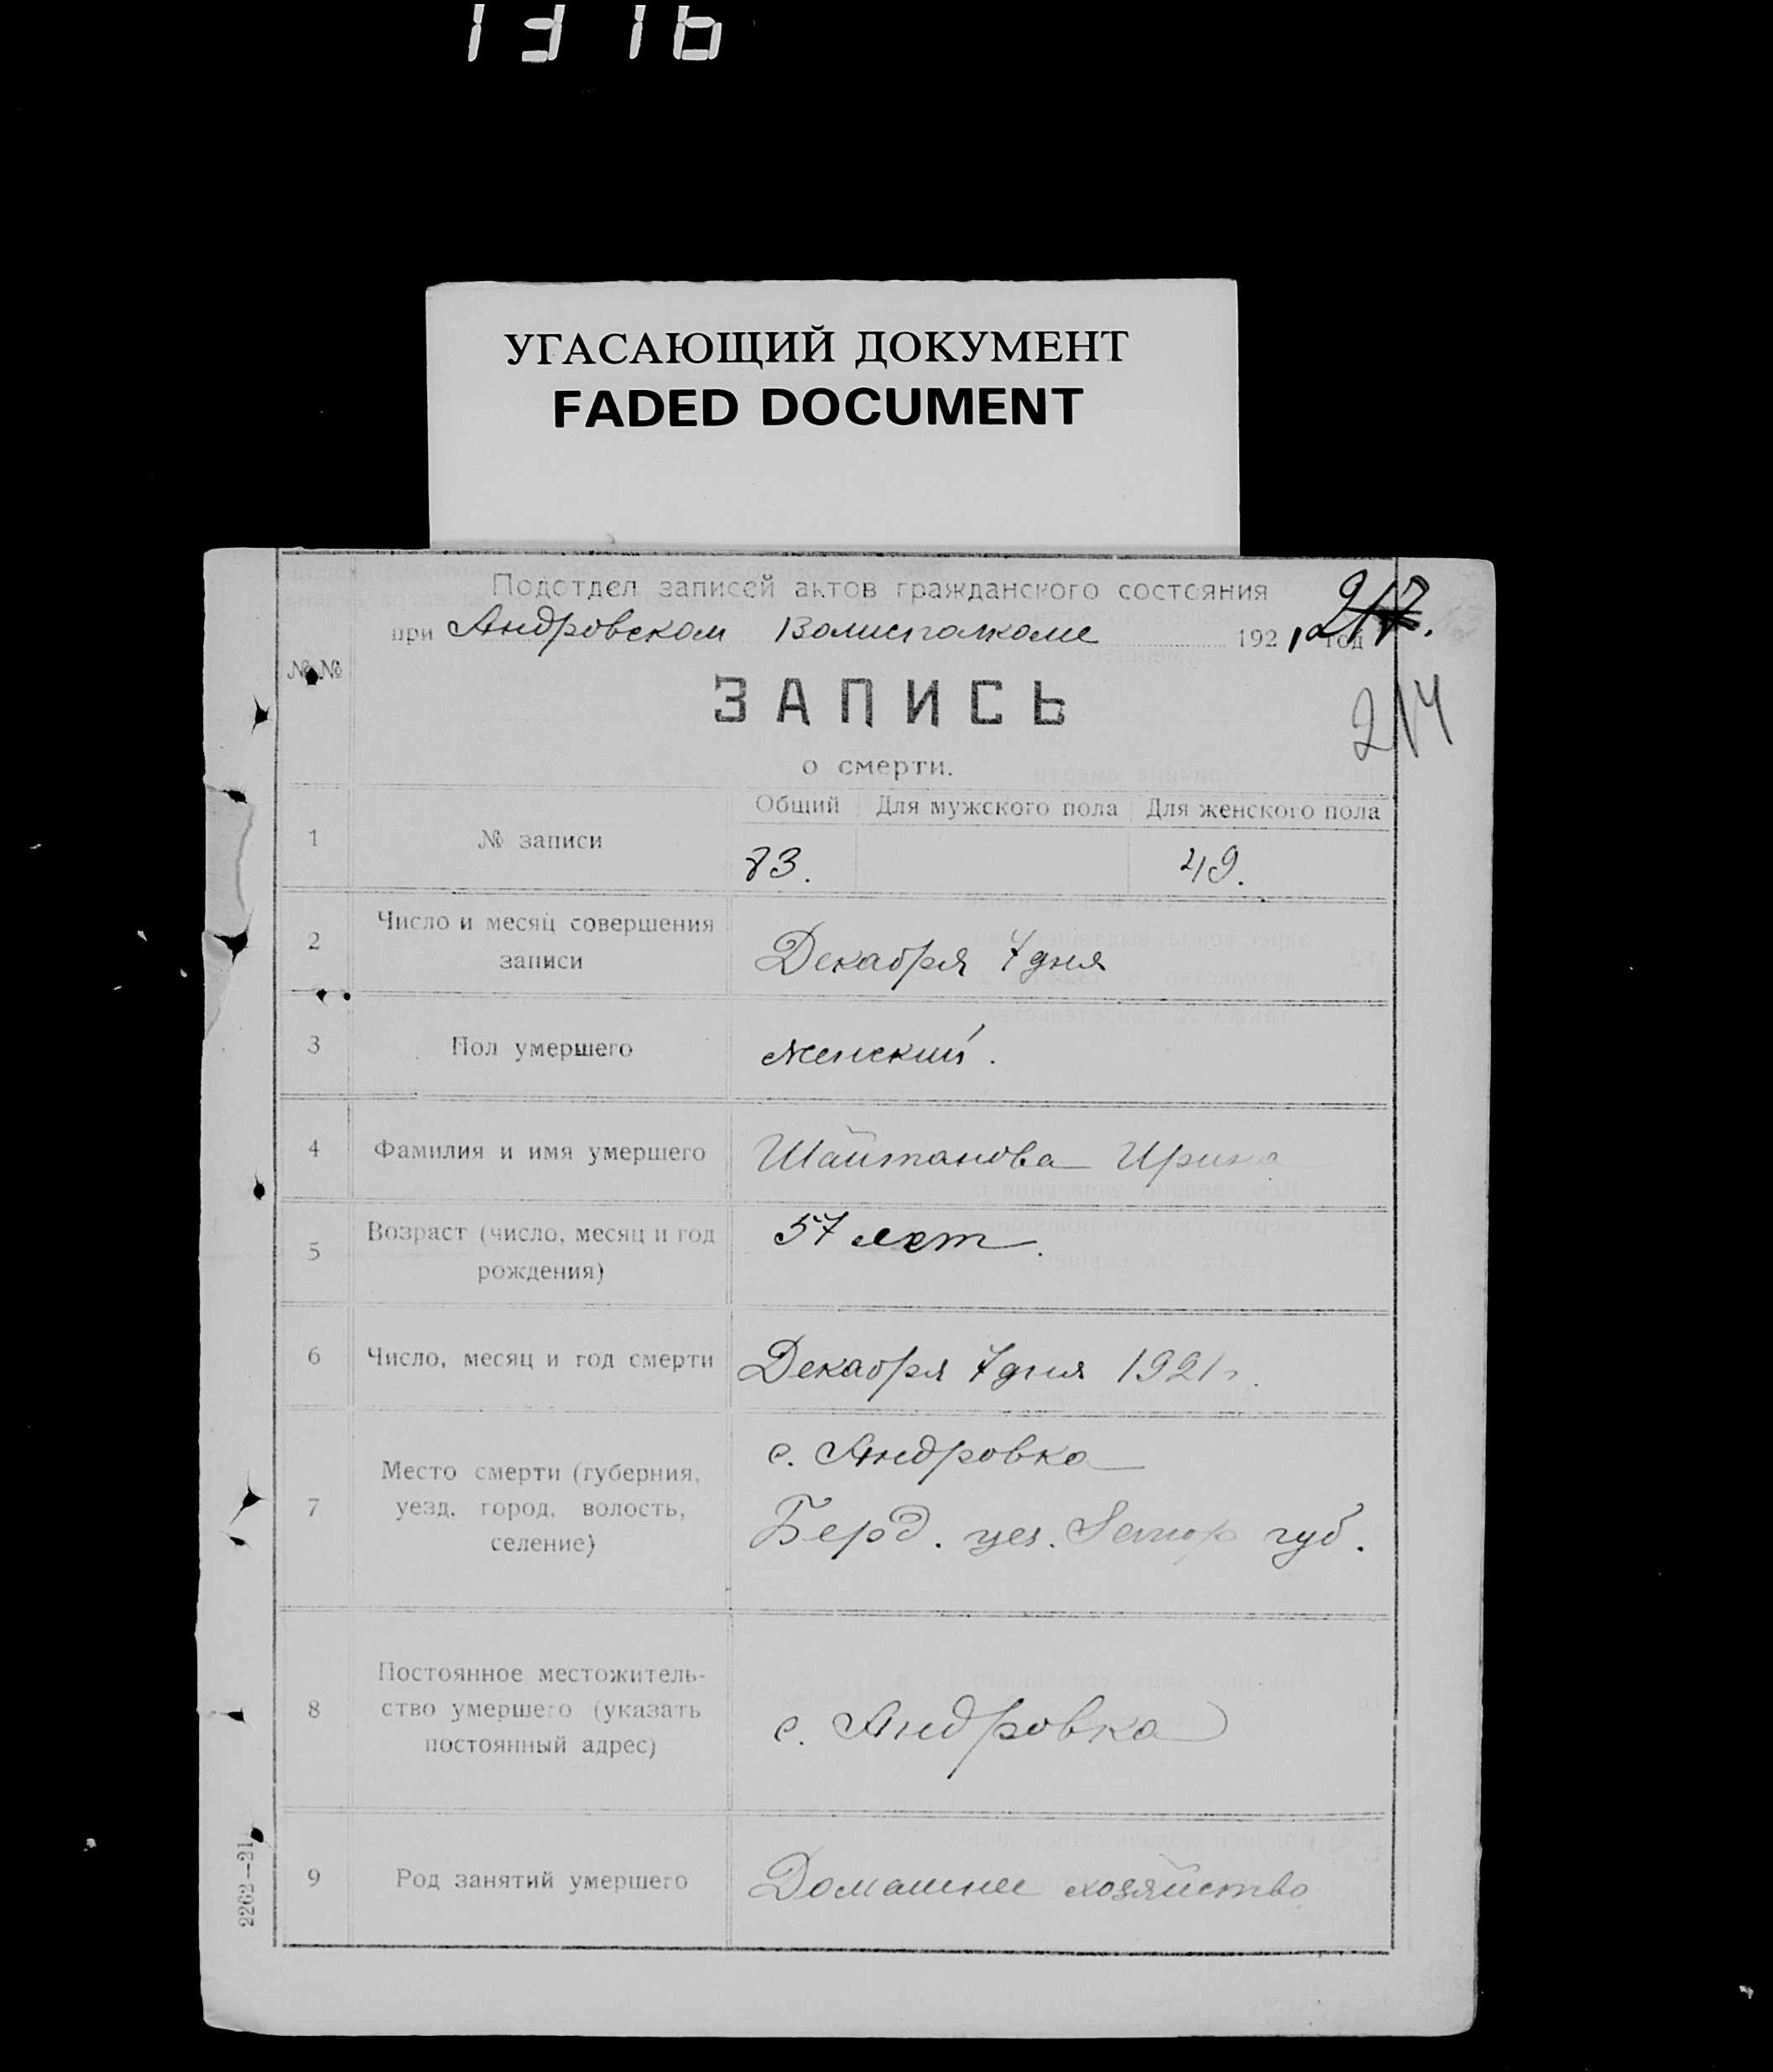 1316
УГАСАЮЩИЙ ДОКУМЕНТ
FADED DOCUMENT
Подотдел записей актов гражданского состояния
при Андровском Волисполкоме 1921 год
217.
№№
ЗАПИСЬ
214
о смерти.
Общий Для мужского пола Для женского пола
1 № записи
83. 49.
2 Число и месяц совершения
записи
Декабря 7 дня
3 Пол умершего женский.
4 Фамилия и имя умершего Шайтанова Ирина
5 Возраст (число, месяц и год
рождения)
57 лет.
6 Число, месяц и год смерти Декабря 7 дня 1921 г.
7 Место смерти (губерния,
уезд, город, волость,
селение)
с. Андровка
Берд. уез. Запор губ.
8 Постоянное местожитель-
ство умершего (указать
постоянный адрес)
с. Андровка
9 Род занятий умершего Домашнее хозяйство
2262—21